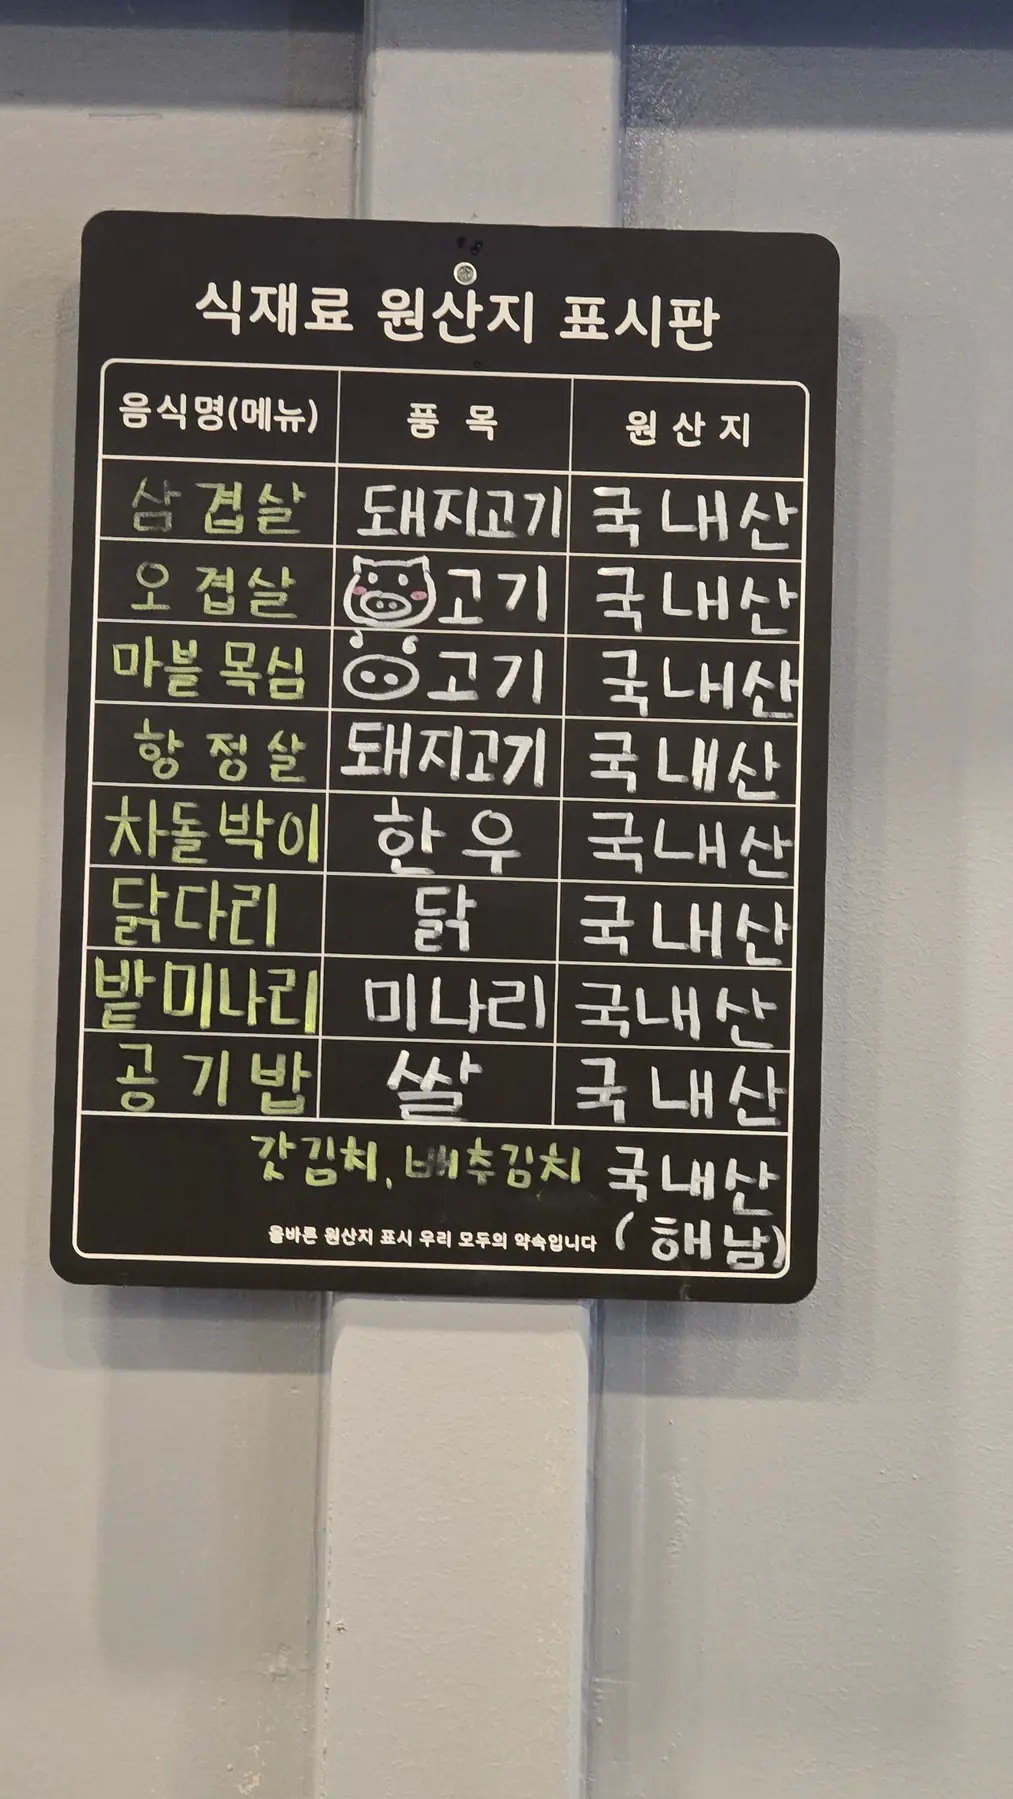 식재료 원산지 표시판
음식명(메뉴) 품 목 원 산 지
삼겹살 돼지고기 국내산
오겹살 고기 국내산
마블목심 고기 국내산
항정살 돼지고기 국내산
차돌박이 한우 국내산
닭다리 닭 국내산
밭미나리 미나리 국내산
공기밥 쌀 국내산
갓김치, 배추김치 국내산
올바른 원산지 표시 우리 모두의 약속입니다 (해남)